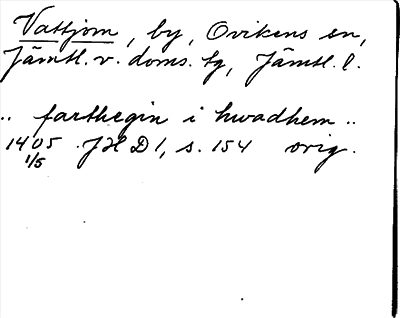 Vattjom, by, Ovikens sn,
Jämtl. v. doms. tg, Jämtl. l.
.. farthegin i hwadhem ..
1405 JHD 1, s. 154 orig.
1/5